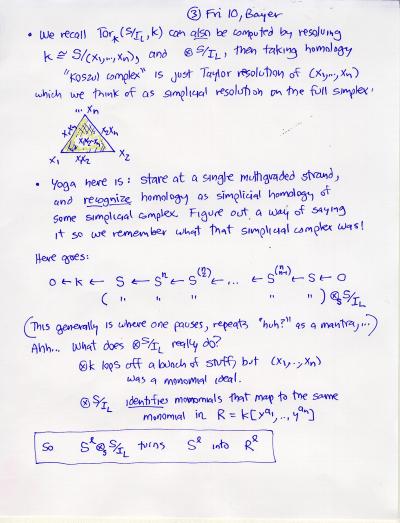 ③ Fri 10, Bayer
• We recall Tor_k(S/I_L, k) can also be computed by resolving
k ≅ S/(x₁,…,xₙ), and ⊗ S/I_L, then taking homology
"Koszul complex" is just Taylor resolution of (x₁,…,xₙ)
which we think of as simplicial resolution on the full simplex:
… xₙ
x₁xₙ x₂xₙ
x₁x₂…xₙ
x₁ x₁x₂ x₂
• Yoga here is: stare at a single multigraded strand,
and recognize homology as simplicial homology of
some simplicial complex. Figure out a way of saying
it so we remember what that simplicial complex was!
Here goes:
0 ← k ← S ← Sⁿ ← S^(n choose 2) ← … ← S^(n choose n-1) ← S ← 0
( " " " " " ) ⊗_S S/I_L
(This generally is where one pauses, repeats "huh?" as a mantra,…)
Ahh… What does ⊗ S/I_L really do?
⊗k lops off a bunch of stuff, but (x₁,…,xₙ)
was a monomial ideal.
⊗ S/I_L identifies monomials that map to the same
monomial in R = k[y^a₁,…,y^aₙ]
So S^ℓ ⊗_S S/I_L turns S^ℓ into R^ℓ